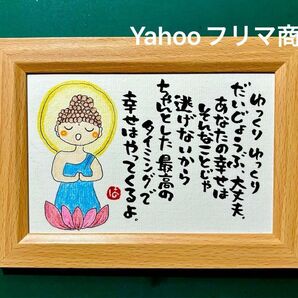 Yahooフリマ商
ゆっくり ゆっくり
だいじょうぶ、大丈夫。
あなたの幸せは
そんなことじゃ
逃げないから
ちゃんとした 最高の
タイミングで
幸せはやってくるよ。
は